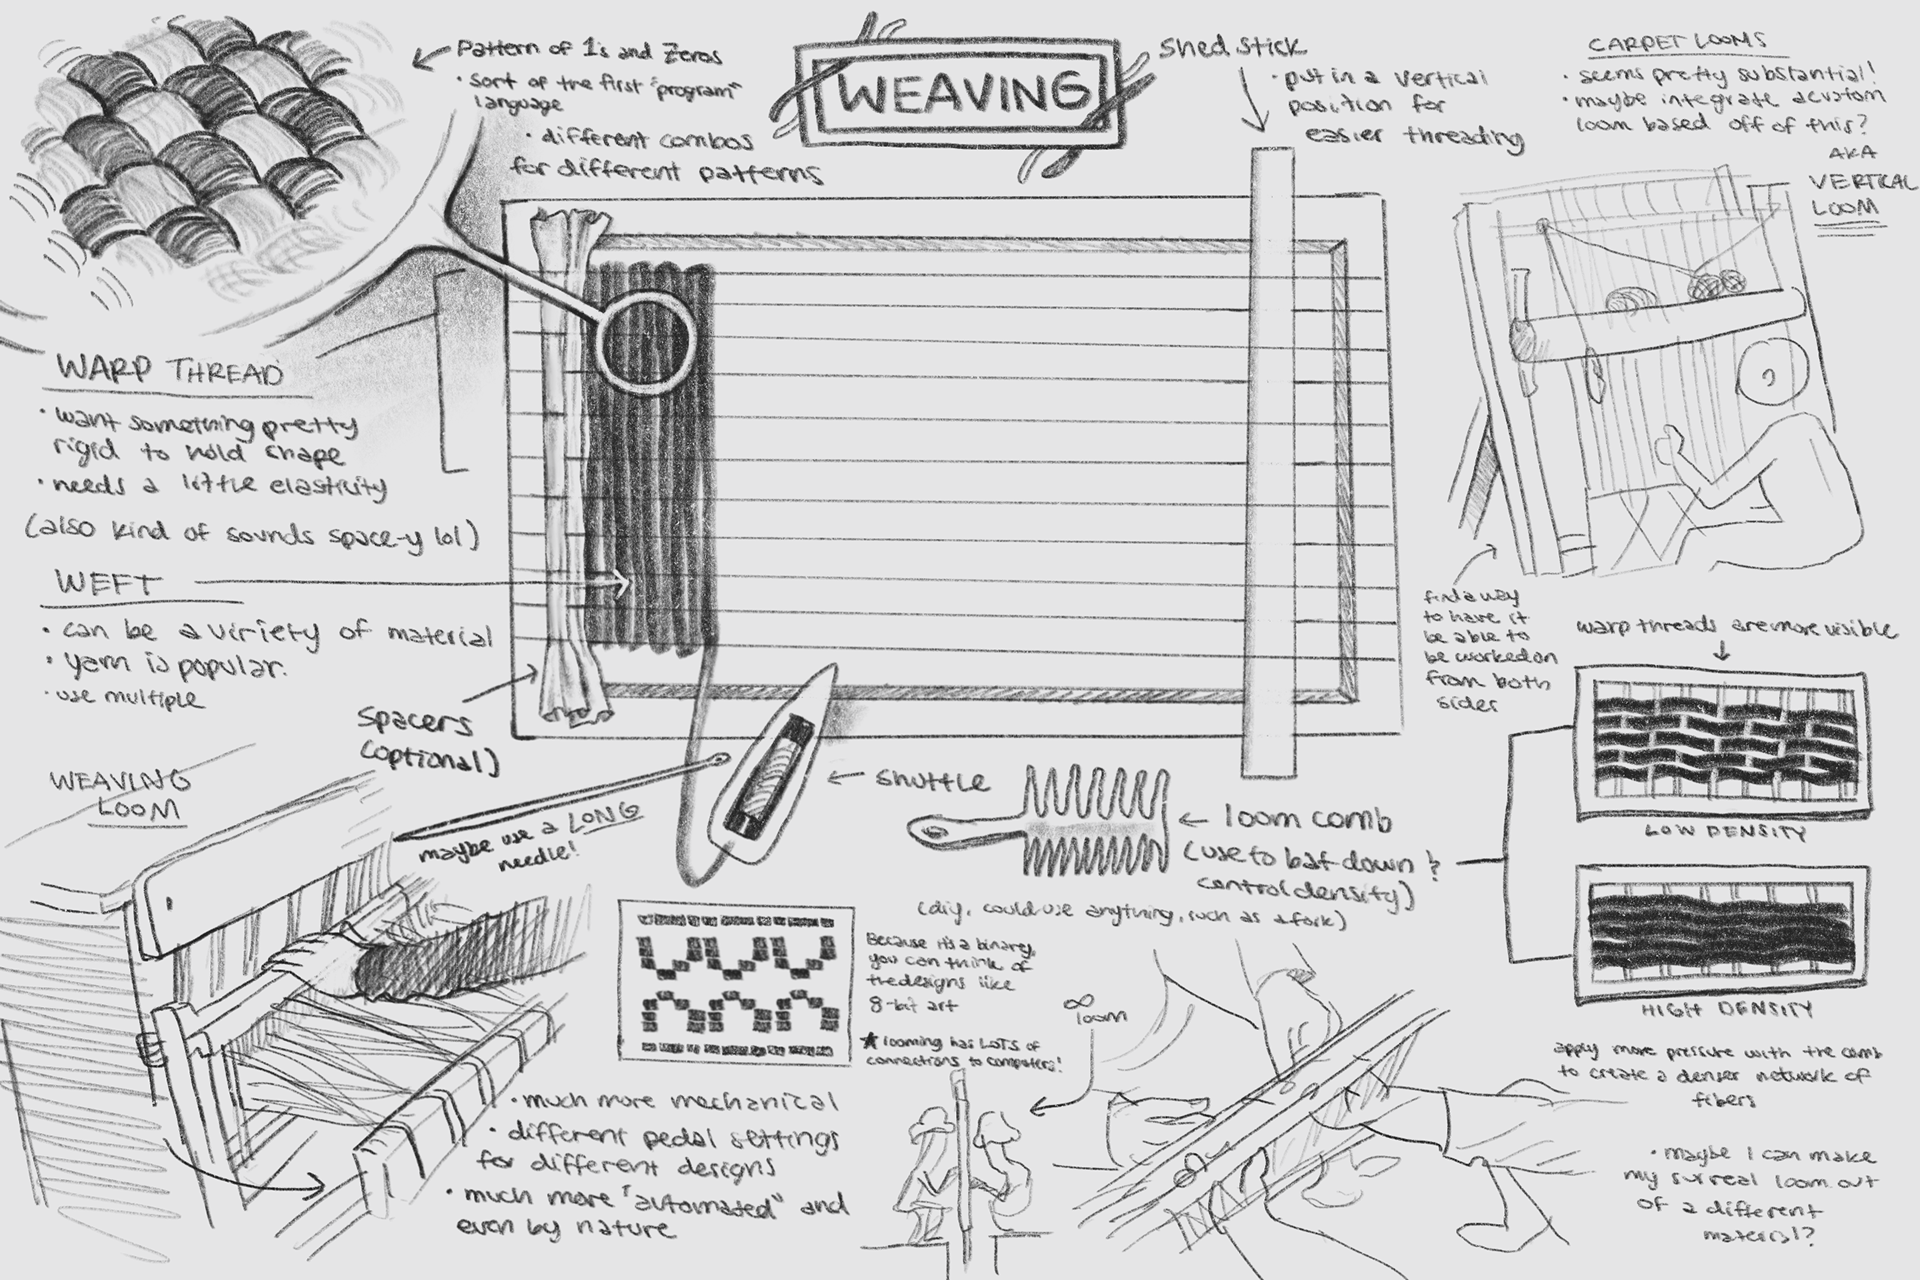 WEAVING
Pattern of 1's and Zeros
· sort of the first "program"
language
· different combos
for different patterns
shed stick
· put in a vertical
position for
easier threading
CARPET LOOMS
· seems pretty substantial!
· maybe integrate a custom
loom based off of this?
AKA
VERTICAL
LOOM
WARP THREAD
· want something pretty
rigid to hold shape
· needs a little elastisity
(also kind of sounds space-y lol)
WEFT
· can be a viriety of material
· yarn is popular.
· use multiple
Spacers
(optional)
find a way
to have it
be able to
be worked on
from both
sides
warp threads are more visible
LOW DENSITY
HIGH DENSITY
apply more pressure with the comb
to create a denser network of
fibers
· maybe I can make
my surreal loom out
of a different
material?
WEAVING
LOOM
maybe use a LONG
needle!
← shuttle
← loom comb
(use to bat down ?
control density)
(diy, could use anything, such as a fork)
Because it's a binary,
you can think of
the designs like
8-bit art
★ looming has LOTS of
connections to computers!
∞
loom
· much more mechanical
· different pedal settings
for different designs
· much more "automated" and
even by nature